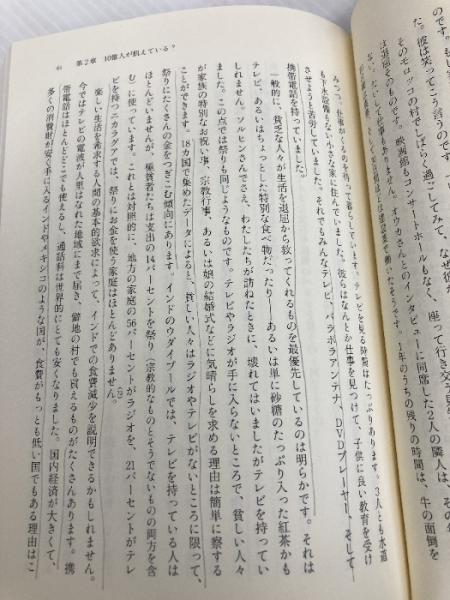 第2章　10億人が飢えている？
のです。も
、彼は笑ってこう言うのです。
のモロッコの村でしばらく過ごしてみて、なぜ彼が
は退屈そのものです。映画館もコンサートホールもなく、座って行き交う見
もありません。オウカさんとのインタビューに同席した2人の隣人は、
1年のうちの残りの時間は、牛の面倒を
みつつ、仕事がくるのを待って暮らしています。テレビを見る時間はたっぷりあります。3人とも水道
も下水設備もない小さな家に住んでいました。彼らはなんとか仕事を見つけて、子供に良い教育を受け
させようと苦労していました。それでもみんなテレビ、パラボラアンテナ、DVDプレーヤー、そして
携帯電話を持っていました。
一般的に、貧乏な人々が生活を退屈から救ってくれるものを最優先しているのは明らかです。それは
テレビ、あるいはちょっとした特別な食べ物だったり——あるいは単に砂糖のたっぷり入った紅茶かも
しれません。ソルヒンさんでさえ、わたしたちが訪ねたときに、壊れてはいましたがテレビを持ってい
ました。この点では祭りも同じようなものです。テレビやラジオが手に入らないところで、貧しい人々
が家族の特別なお祝い事、宗教行事、あるいは娘の結婚式などに気晴らしを求める理由は簡単に察する
ことができます。18カ国で集めたデータによると、貧しい人々はラジオやテレビがないところに限って、
祭りにたくさんの金をつぎこむ傾向にあります。インドのウダイプールでは、テレビを持っている人は
ほとんどいませんが、極貧者たちは支出の14パーセントを祭り（宗教的なものとそうでないもの両方を含
む）に使っています。これとは対照的に、地方の家庭の56パーセントがラジオを、21パーセントがテレ
ビを持つニカラグアでは、祭りにお金を使う家庭はほとんどありません。
楽しい生活を希求する人間の基本的欲求によって、インドでの食費減少を説明できるかもしれません。
今ではテレビの電波が人里はなれた地域にまで届き、僻地の村でも買えるものがたくさんあります。携
帯電話はほとんどどこでも使えるし、通話料は世界的にとても安くなりました。国内経済が大きくて、
多くの消費財が安く手に入るインドやメキシコのような国が、食費がもっとも低い国でもある理由はこ